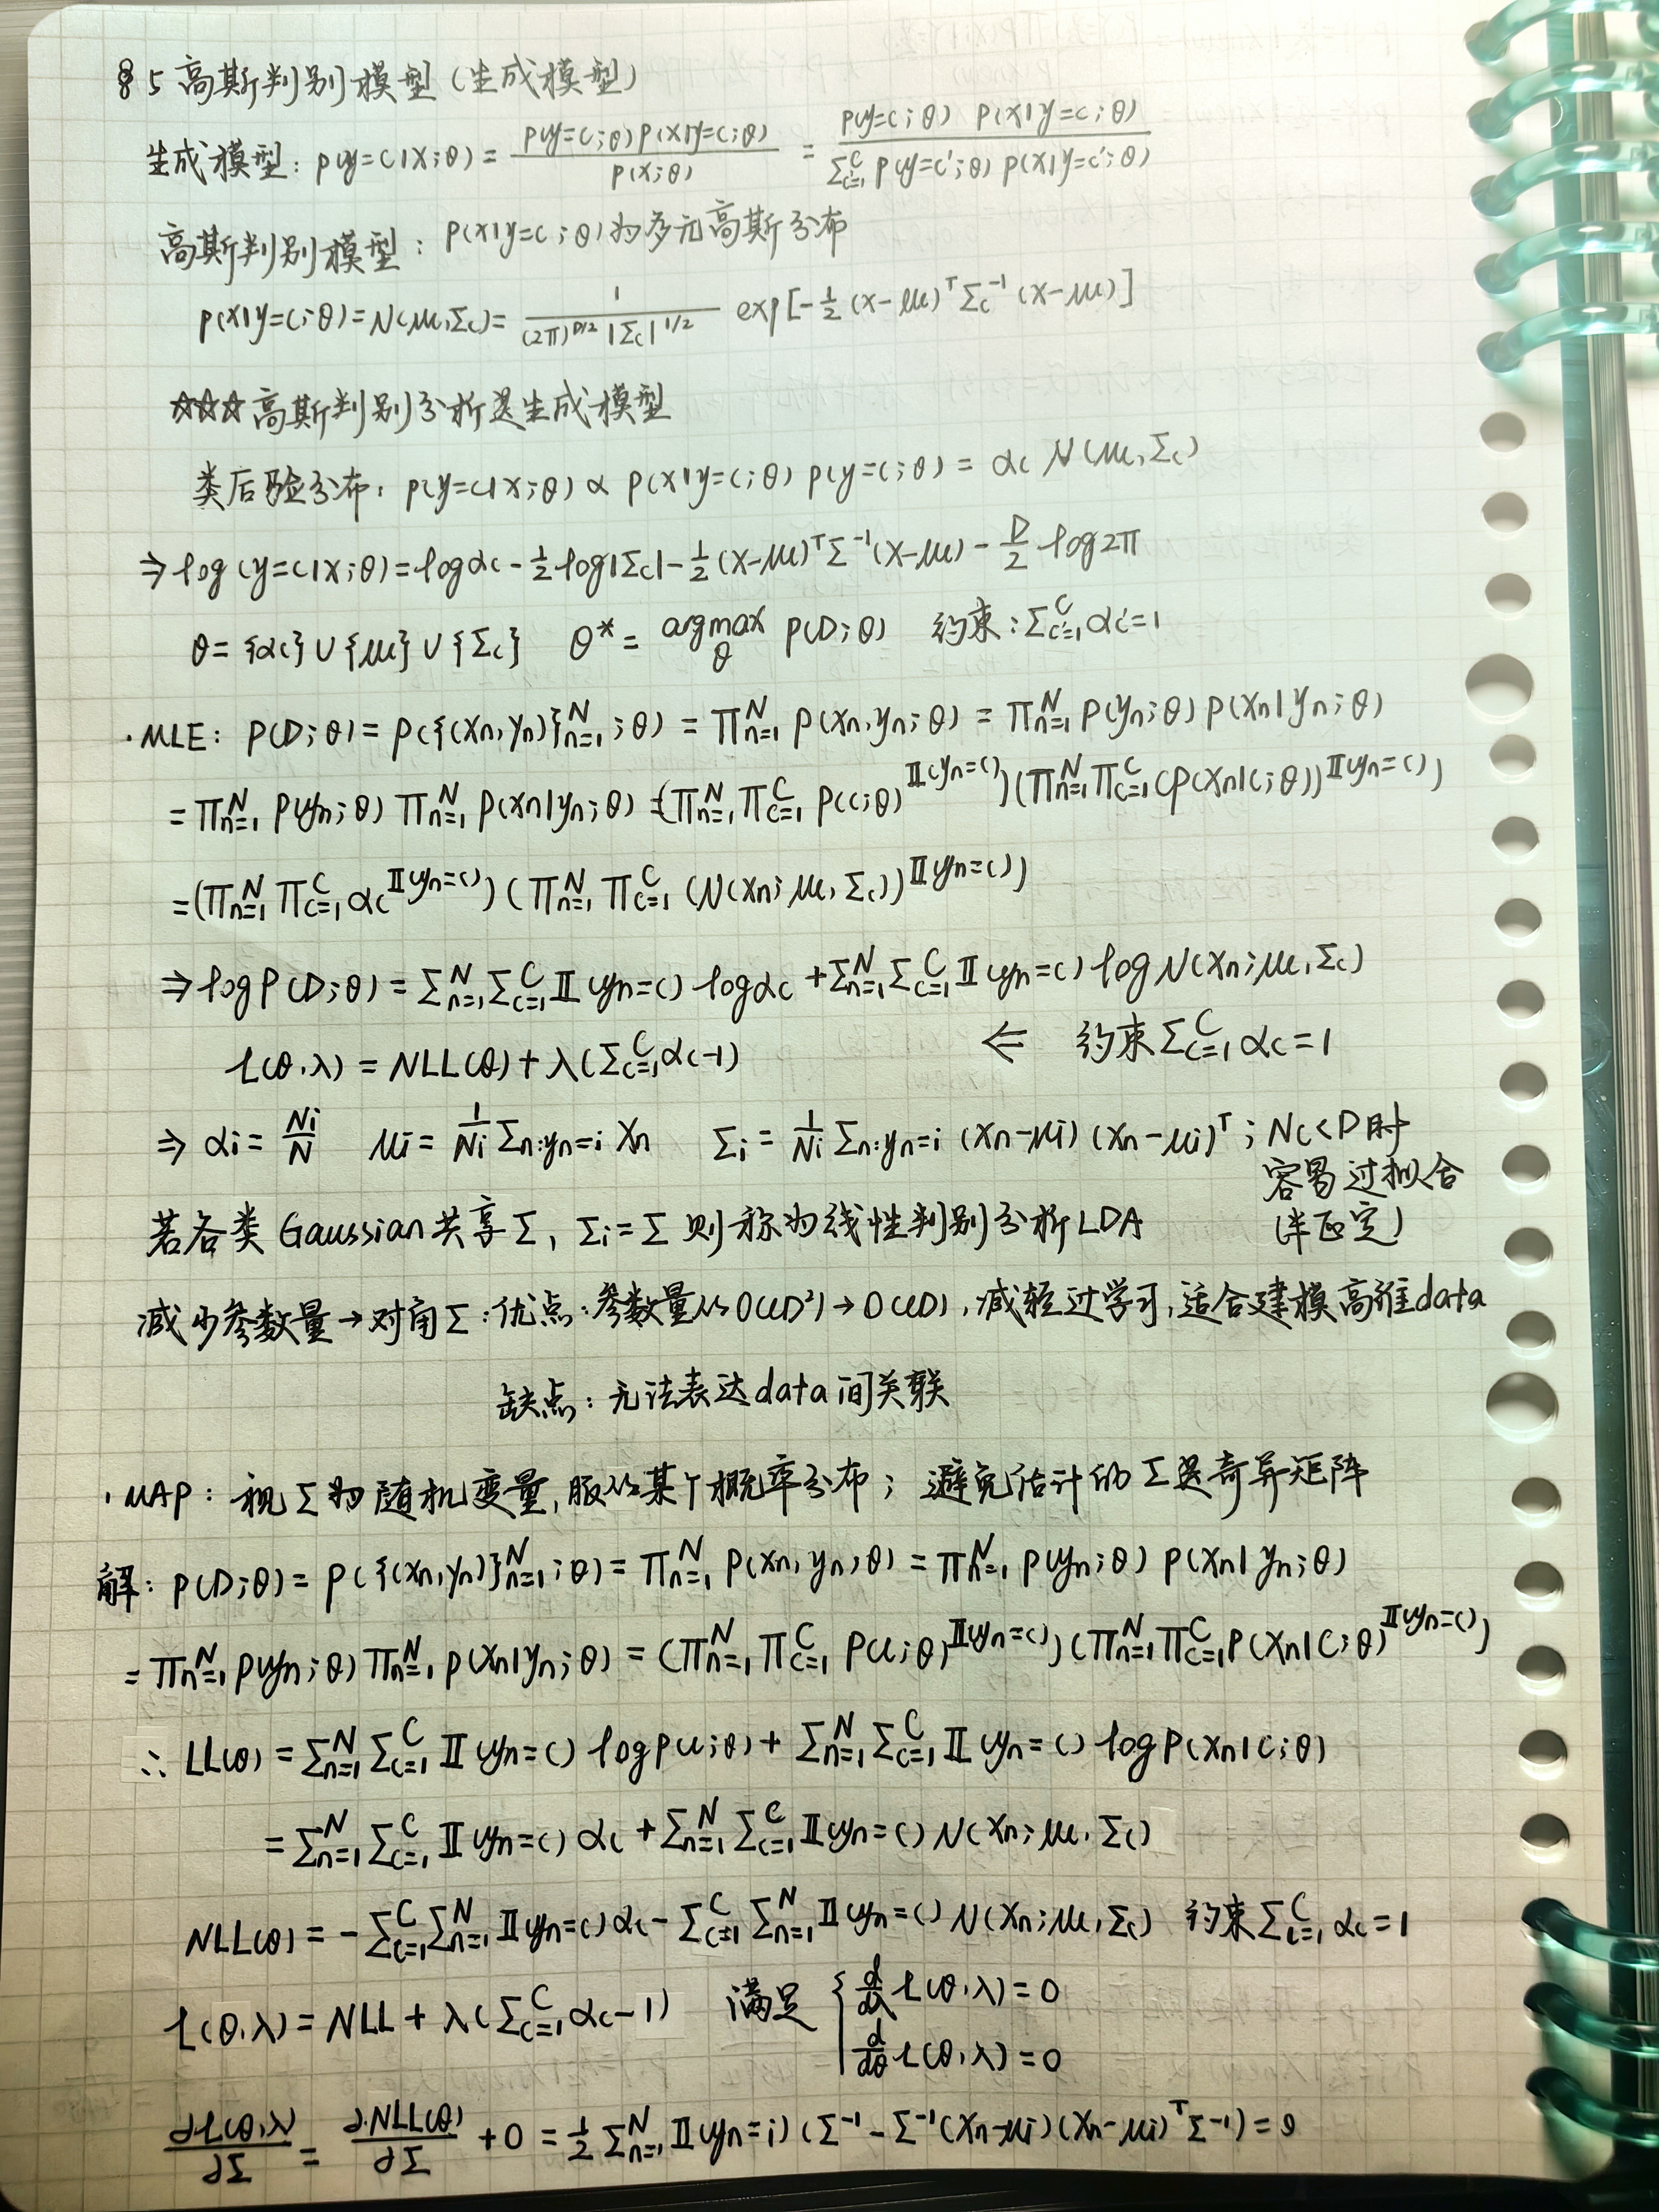 §5 高斯判别模型(生成模型)
生成模型: p(y=c|x;θ) = p(y=c;θ)p(x|y=c;θ) / p(x;θ) = p(y=c;θ) p(x|y=c;θ) / Σ_{c'=1}^C p(y=c';θ) p(x|y=c';θ)
高斯判别模型: p(x|y=c;θ)为多元高斯分布
p(x|y=c;θ)=N(μc,Σc)= 1 / (2π)^{D/2} |Σc|^{1/2} exp[-1/2 (x-μc)^T Σc^{-1} (x-μc)]
☆☆☆高斯判别分析是生成模型
类后验分布: p(y=c|x;θ) ∝ p(x|y=c;θ) p(y=c;θ) = αc N(μc,Σc)
⇒ log(y=c|x;θ)=logαc - 1/2 log|Σc| - 1/2 (x-μc)^T Σ^{-1} (x-μc) - D/2 log2π
θ= {αc} ∪ {μc} ∪ {Σc} θ* = argmax_θ p(D;θ) 约束:Σ_{c'=1}^C αc'=1
·MLE: p(D;θ)= p({(xn,yn)}_{n=1}^N ;θ) = Π_{n=1}^N p(xn,yn;θ) = Π_{n=1}^N p(yn;θ) p(xn|yn;θ)
= Π_{n=1}^N p(yn;θ) Π_{n=1}^N p(xn|yn;θ) =(Π_{n=1}^N Π_{c=1}^C p(c;θ)^{𝕀(yn=c)})(Π_{n=1}^N Π_{c=1}^C (p(xn|c;θ))^{𝕀(yn=c)})
=(Π_{n=1}^N Π_{c=1}^C αc^{𝕀(yn=c)}) (Π_{n=1}^N Π_{c=1}^C (N(xn;μc,Σc))^{𝕀(yn=c)})
⇒ logp(D;θ) = Σ_{n=1}^N Σ_{c=1}^C 𝕀(yn=c) logαc + Σ_{n=1}^N Σ_{c=1}^C 𝕀(yn=c) logN(xn;μc,Σc)
L(θ,λ) = NLL(θ)+λ(Σ_{c=1}^C αc-1) ⇐ 约束Σ_{c=1}^C αc=1
⇒ αi = Ni/N μi = 1/Ni Σ_{n:yn=i} xn Σi = 1/Ni Σ_{n:yn=i} (xn-μi) (xn-μi)^T ; Nc<D时
容易过拟合
(半正定)
若各类Gaussian共享Σ, Σi=Σ 则称为线性判别分析LDA
减少参数量→对角Σ:优点:参数量从O(CD²)→O(CD),减轻过学习,适合建模高维data
缺点:无法表达data间关联
·MAP: 视Σ为随机变量,服从某个概率分布; 避免估计的Σ是奇异矩阵
解: p(D;θ)= p({(xn,yn)}_{n=1}^N ;θ)= Π_{n=1}^N p(xn,yn;θ) = Π_{n=1}^N p(yn;θ) p(xn|yn;θ)
= Π_{n=1}^N p(yn;θ) Π_{n=1}^N p(xn|yn;θ) = (Π_{n=1}^N Π_{c=1}^C p(c;θ)^{𝕀(yn=c)})(Π_{n=1}^N Π_{c=1}^C p(xn|c;θ)^{𝕀(yn=c)})
∴ LL(θ) = Σ_{n=1}^N Σ_{c=1}^C 𝕀(yn=c) logp(c;θ)+ Σ_{n=1}^N Σ_{c=1}^C 𝕀(yn=c) logp(xn|c;θ)
= Σ_{n=1}^N Σ_{c=1}^C 𝕀(yn=c) αc + Σ_{n=1}^N Σ_{c=1}^C 𝕀(yn=c) N(xn;μc,Σc)
NLL(θ) = -Σ_{c=1}^C Σ_{n=1}^N 𝕀(yn=c) αc - Σ_{c=1}^C Σ_{n=1}^N 𝕀(yn=c) N(xn;μc,Σc) 约束Σ_{c=1}^C αc=1
L(θ,λ) = NLL + λ(Σ_{c=1}^C αc-1) 满足 { d/dλ L(θ,λ)=0
d/dθ L(θ,λ)=0
∂L(θ,λ)/∂Σ = ∂NLL(θ)/∂Σ +0 = 1/2 Σ_{n=1}^N 𝕀(yn=i) (Σ^{-1} - Σ^{-1}(xn-μi)(xn-μi)^T Σ^{-1})=0